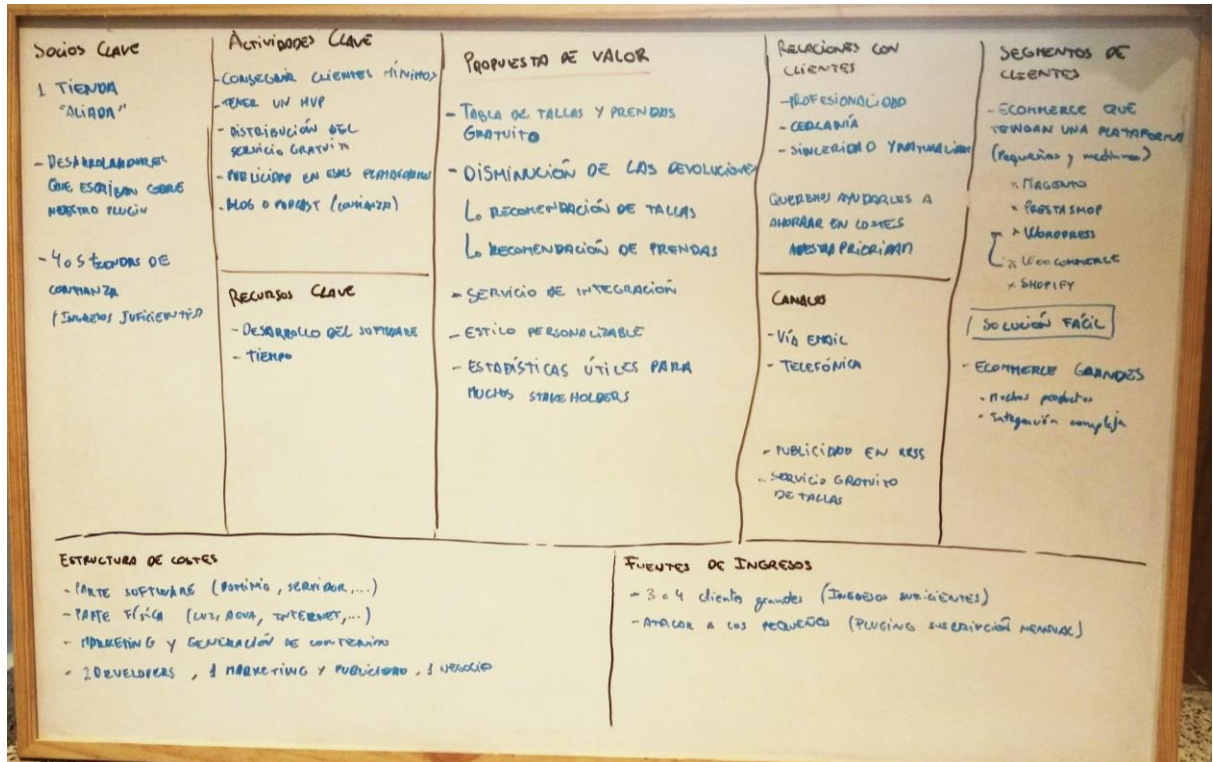 SOCIOS CLAVE
1 TIENDA
"ALIADA"
- DESARROLLADORES
QUE ESCRIBAN SOBRE
NUESTRO PLUGIN
- 4 o 5 TIENDAS DE
CONFIANZA
(INGRESOS SUFICIENTES)
ACTIVIDADES CLAVE
- CONSEGUIR CLIENTES MÍNIMOS
- TENER UN MVP
- DISTRIBUCIÓN DEL
SERVICIO GRATUITO
- PUBLICIDAD EN ESAS PLATAFORMAS
- BLOG O PODCAST (CONFIANZA)
RECURSOS CLAVE
- DESARROLLO DEL SOFTWARE
- TIEMPO
PROPUESTA DE VALOR
- TABLA DE TALLAS Y PRENDAS
GRATUITO
- DISMINUCIÓN DE LAS DEVOLUCIONES
RECOMENDACIÓN DE TALLAS
RECOMENDACIÓN DE PRENDAS
- SERVICIO DE INTEGRACIÓN
- ESTILO PERSONALIZABLE
- ESTADÍSTICAS ÚTILES PARA
MUCHOS STAKEHOLDERS
RELACIONES CON
CLIENTES
- PROFESIONALIDAD
- CERCANÍA
- SINCERIDAD Y NATURALIDAD
QUEREMOS AYUDARLES A
AHORRAR EN COSTES
NUESTRA PRIORIDAD
CANALES
- VÍA EMAIL
- TELEFÓNICA
- PUBLICIDAD EN RRSS
- SERVICIO GRATUITO
DE TALLAS
SEGMENTOS DE
CLIENTES
- ECOMMERCE QUE
TENGAN UNA PLATAFORMA
(Pequeños y medianos)
x MAGENTO
x PRESTASHOP
x WORDPRESS
x WOOCOMMERCE
x SHOPIFY
SOLUCIÓN FÁCIL
- ECOMMERCE GRANDES
- Muchos productos
- Integración compleja
ESTRUCTURA DE COSTES
- PARTE SOFTWARE (DOMINIO, SERVIDOR,...)
- PARTE FÍSICA (LUZ, AGUA, INTERNET,...)
- MARKETING Y GENERACIÓN DE CONTENIDO
- 2 DEVELOPERS, 1 MARKETING Y PUBLICIDAD, 1 NEGOCIO
FUENTES DE INGRESOS
- 3 o 4 clientes grandes (INGRESOS SUFICIENTES)
- ATACAR A LOS PEQUEÑOS (PLUGING SUSCRIPCIÓN MENSUAL)